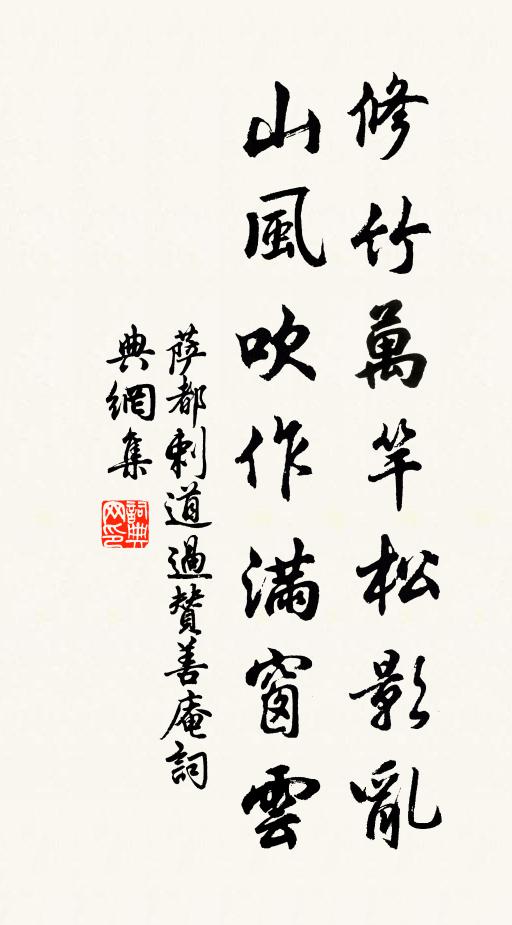 修竹萬竿松影亂
山風吹作滿窗雲
薩都剌道過贊善庵詞
典網集
詞典网印